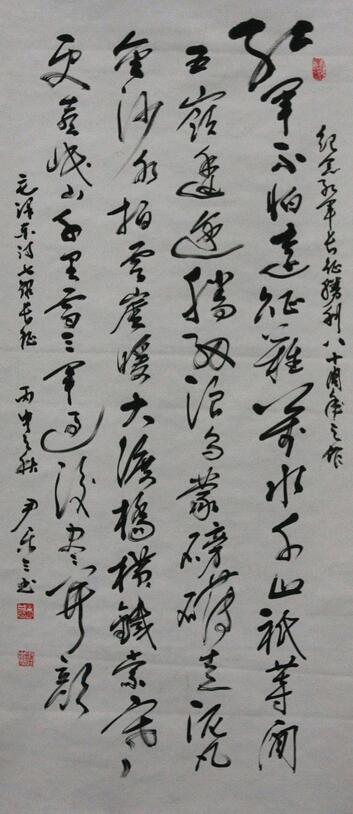 紀念紅軍長征勝利八十周年之作
紅軍不怕遠征難萬水千山祇等閒
五嶺逶迤騰細浪烏蒙磅礴走泥丸
金沙水拍雲崖暖大渡橋横鐵索寒
更喜岷山千里雪三軍過後盡開顏
毛澤東詩七律長征 丙申之秋 尹